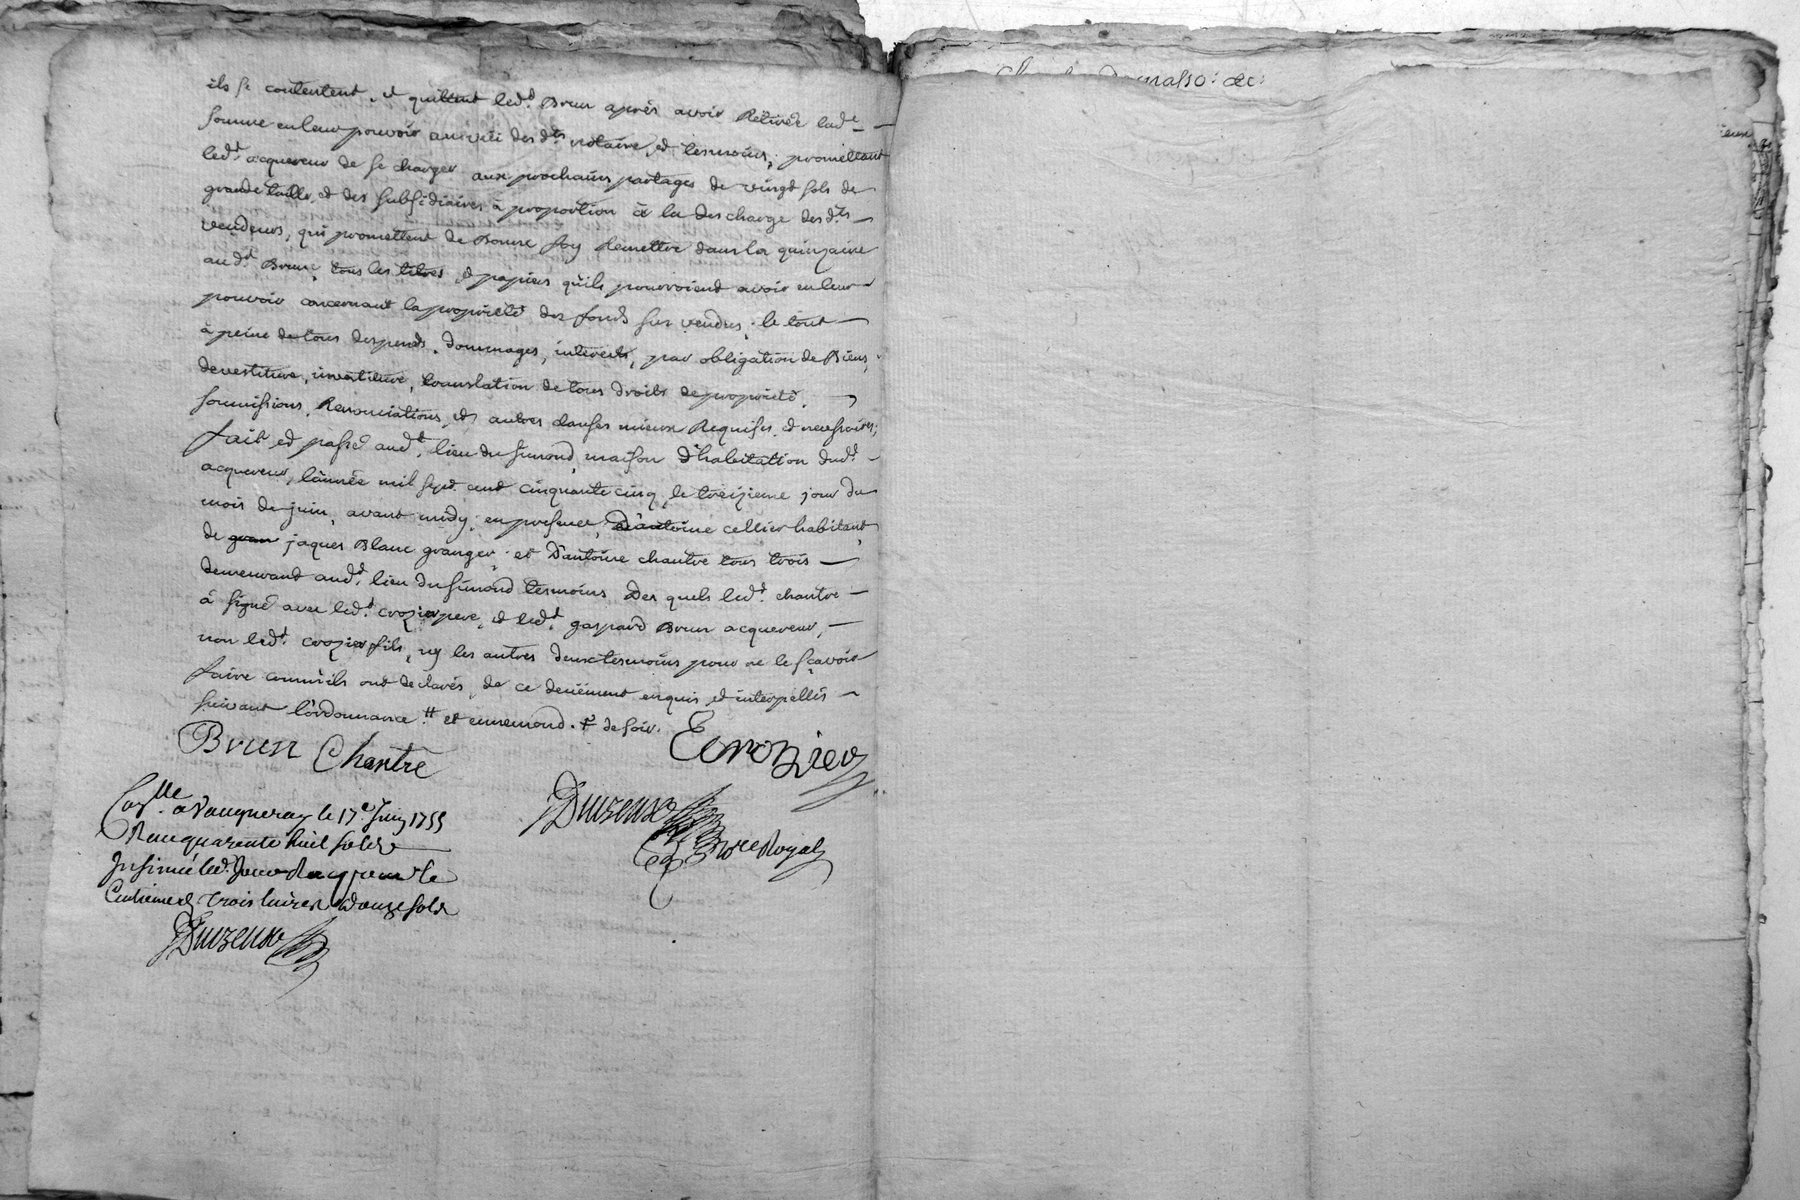 ils se contentent, et quittent led.t Brun aprés avoir Retirée lad.e
somme en leur pouvoir au vüe des d.ts notaire, et tesmoins; promettant
led.t acquereur de se charger aux prochains partages de vingt sols de
grande taille, et des subsidiaires à proportion à la descharge des d.ts
vendeurs, qui promettent de bonne foy Remettre dans la quinzaine
au d.t Brun, tous les titres et papiers qu'ils pourroient avoir en leur
pouvoir concernant la propriété des fonds sus vendus; le tout
à peine de tous despends, dommages, interets, par obligation de Biens,
devestiture, investiture, translation de tous droits de proprieté,
soumissions, Renonciations, et autres clauses mieux Requises, et necessaires;
fait et passé aud.t lieu du simond, maison d'habitation dud.t
acquereur, l'année mil sept cent cinquante cinq, le treizieme jour du
mois de juin, avant midy; en presence, d'antoine cellier habitant
de jaques Blanc granger, et d'antoine chantre tous trois
demeurant aud.t lieu du simond tesmoins des quels led.t chantre
à signé avec led.t crozier pere, et led.t gaspard Brun acquereur,
non led.t crozier fils, ny les autres deux tesmoins pour ne le sçavoir
faire comm'ils ont declarés, de ce deüement enquis et interpellés
suivant l'ordonnance
Brun Chantre
Crozier
Con.lle a Vaugneray le 17.e Juin 1755
Reçu quarente huit sols
Insinué led. Jour Reçu pour le
Centieme d. trois livres douze sols